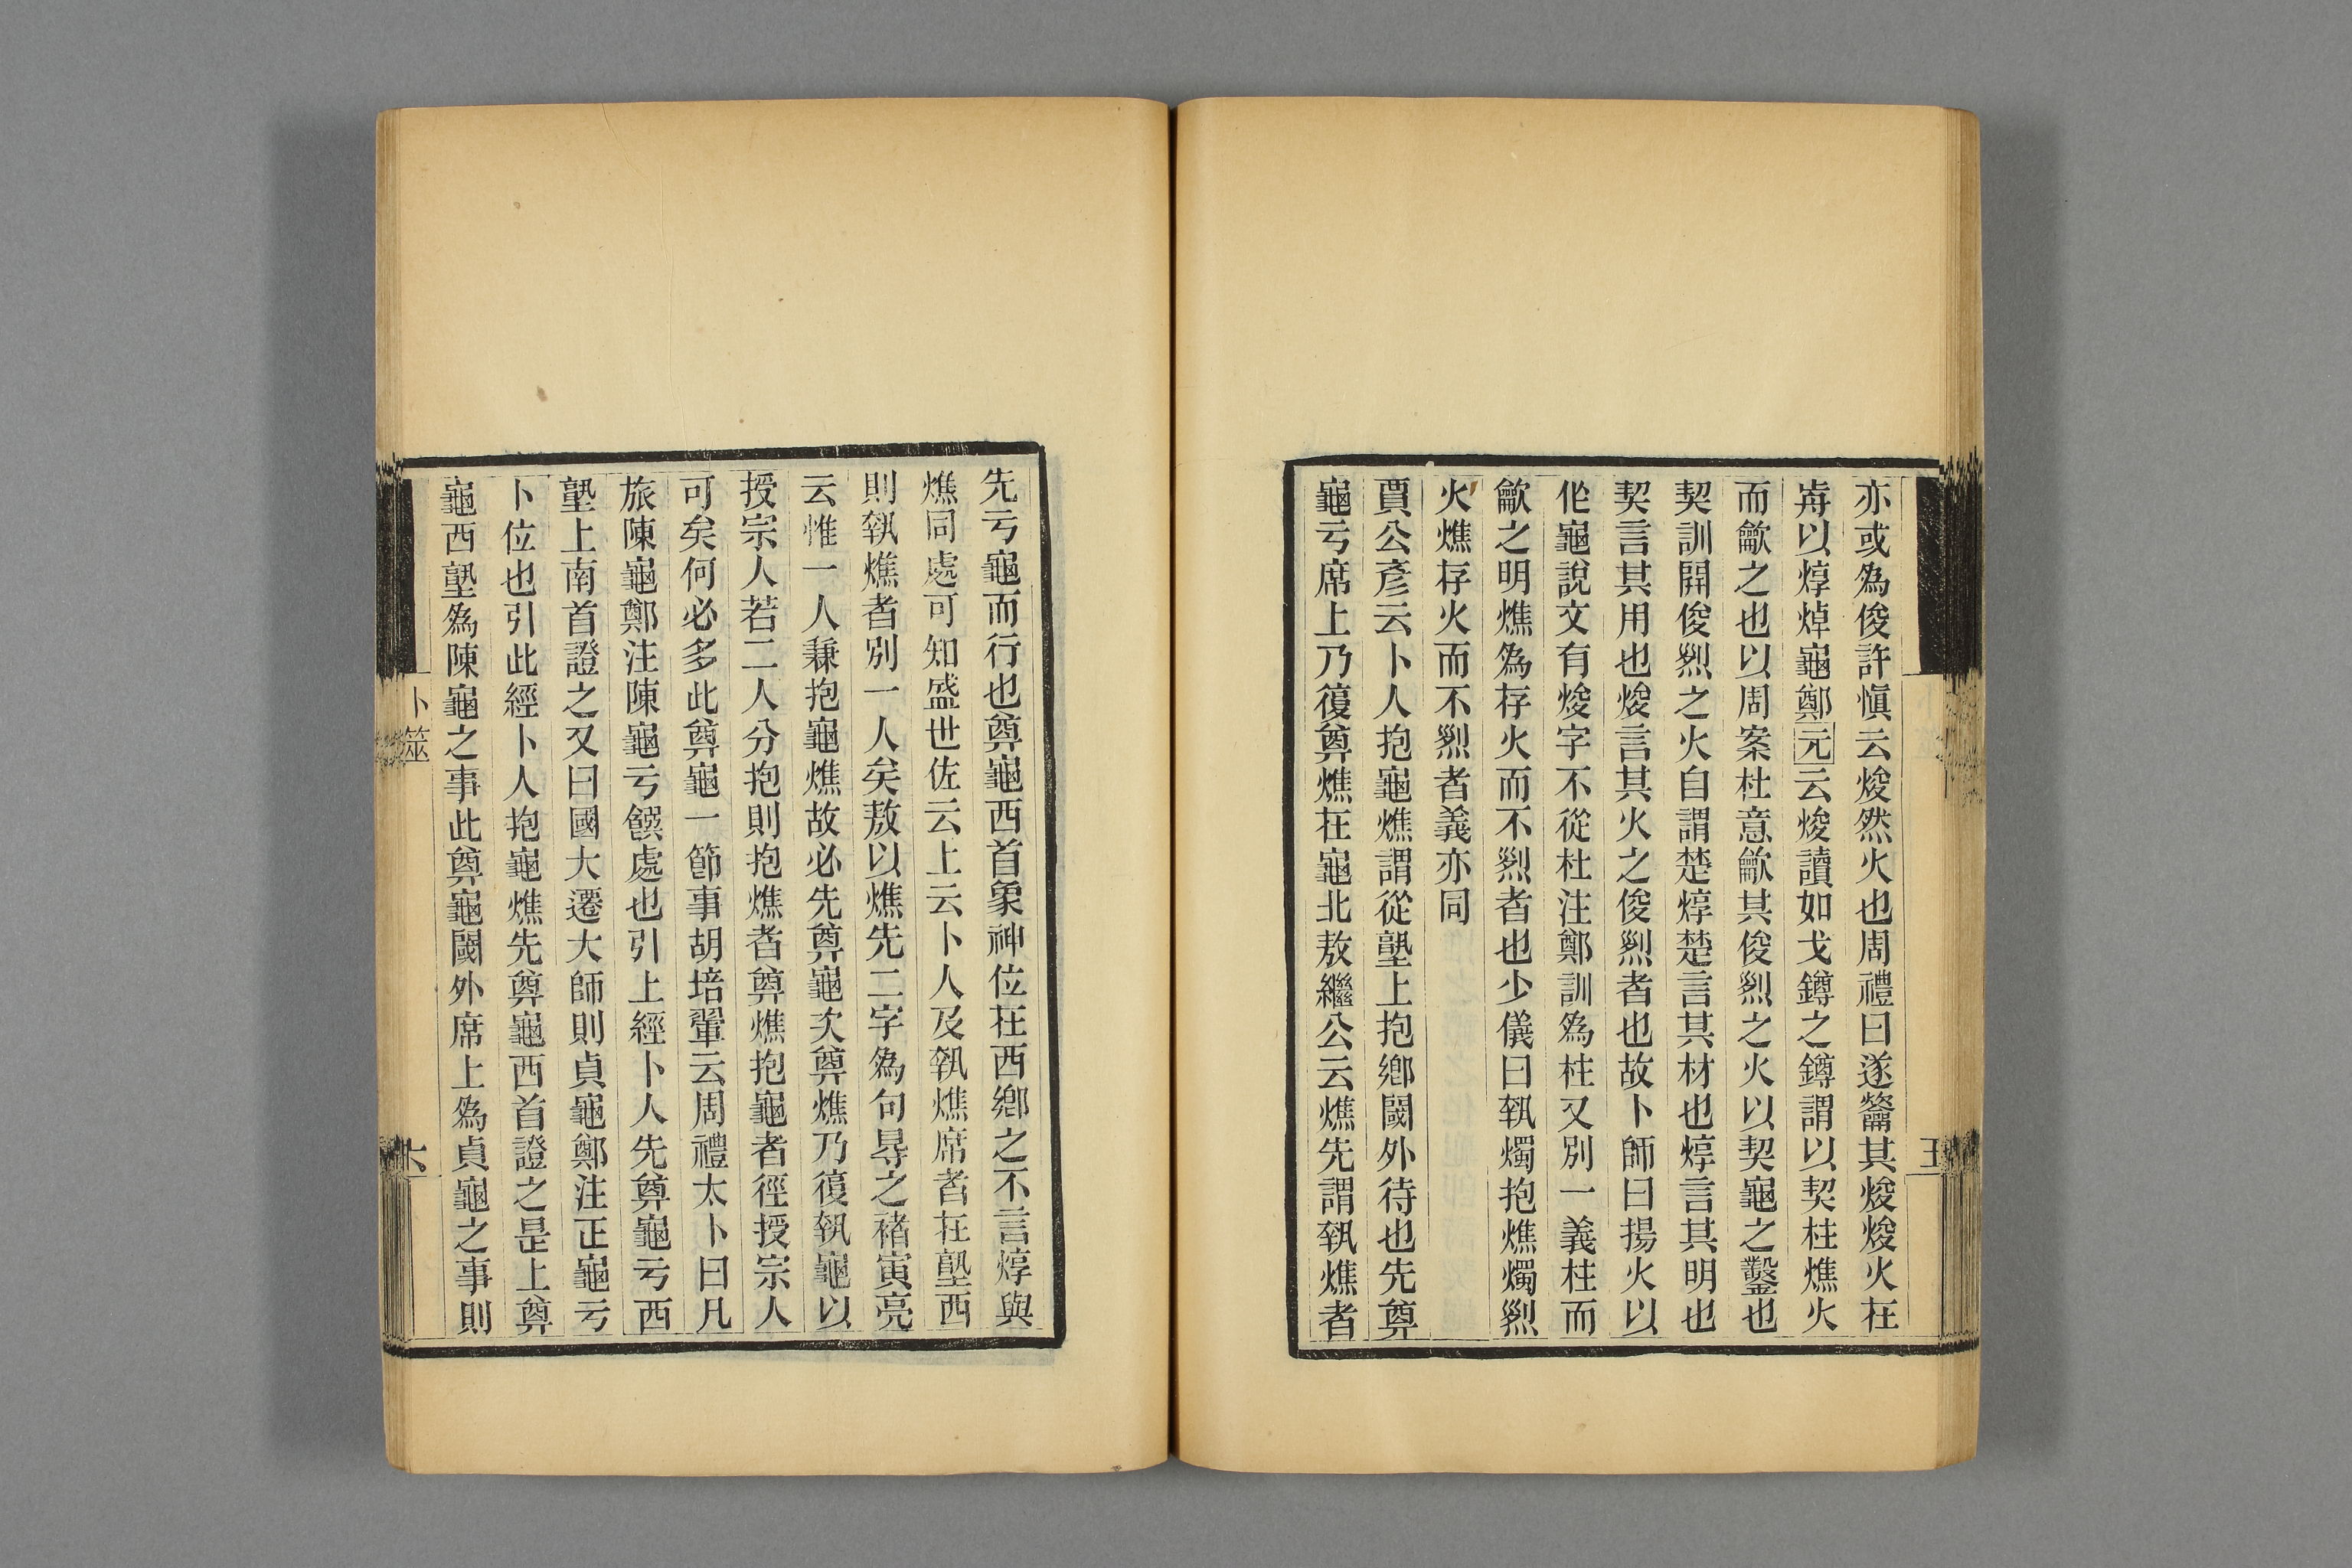 亦或為俊許愼云焌然火也周禮曰遂籥其焌焌火在
歬以焞焯龜鄭元云焌讀如戈鐏之鐏謂以契柱燋火
而龡之也以周案杜意龡其俊㷉之火以契龜之鑿也
契訓開俊㷉之火自謂楚焞楚言其材也焞言其明也
契言其用也焌言其火之俊㷉者也故卜師曰揚火以
作龜說文有焌字不從杜注鄭訓為柱又別一義柱而
龡之明燋為存火而不㷉者也少儀曰執燭抱燋燭㷉
火燋存火而不㷉者義亦同
賈公彥云卜人抱龜燋謂從塾上抱鄉闑外待也先奠
龜亏席上乃復奠燋在龜北敖繼公云燋先謂執燋者
五
先亏龜而行也奠龜西首象神位在西鄉之不言焞與
燋同處可知盛世佐云上云卜人及執燋席者在塾西
則執燋者別一人矣敖以燋先二字為句㝵之褚寅亮
云惟一人兼抱龜燋故必先奠龜次奠燋乃復執龜以
授宗人若二人分抱則抱燋者奠燋抱龜者徑授宗人
可矣何必多此奠龜一節事胡培翬云周禮太卜曰凡
旅陳龜鄭注陳龜亏饌處也引上經卜人先奠龜亏西
塾上南首證之又曰國大遷大師則貞龜鄭注正龜亏
卜位也引此經卜人抱龜燋先奠龜西首證之是上奠
龜西塾為陳龜之事此奠龜闑外席上為貞龜之事則
卜筮
六